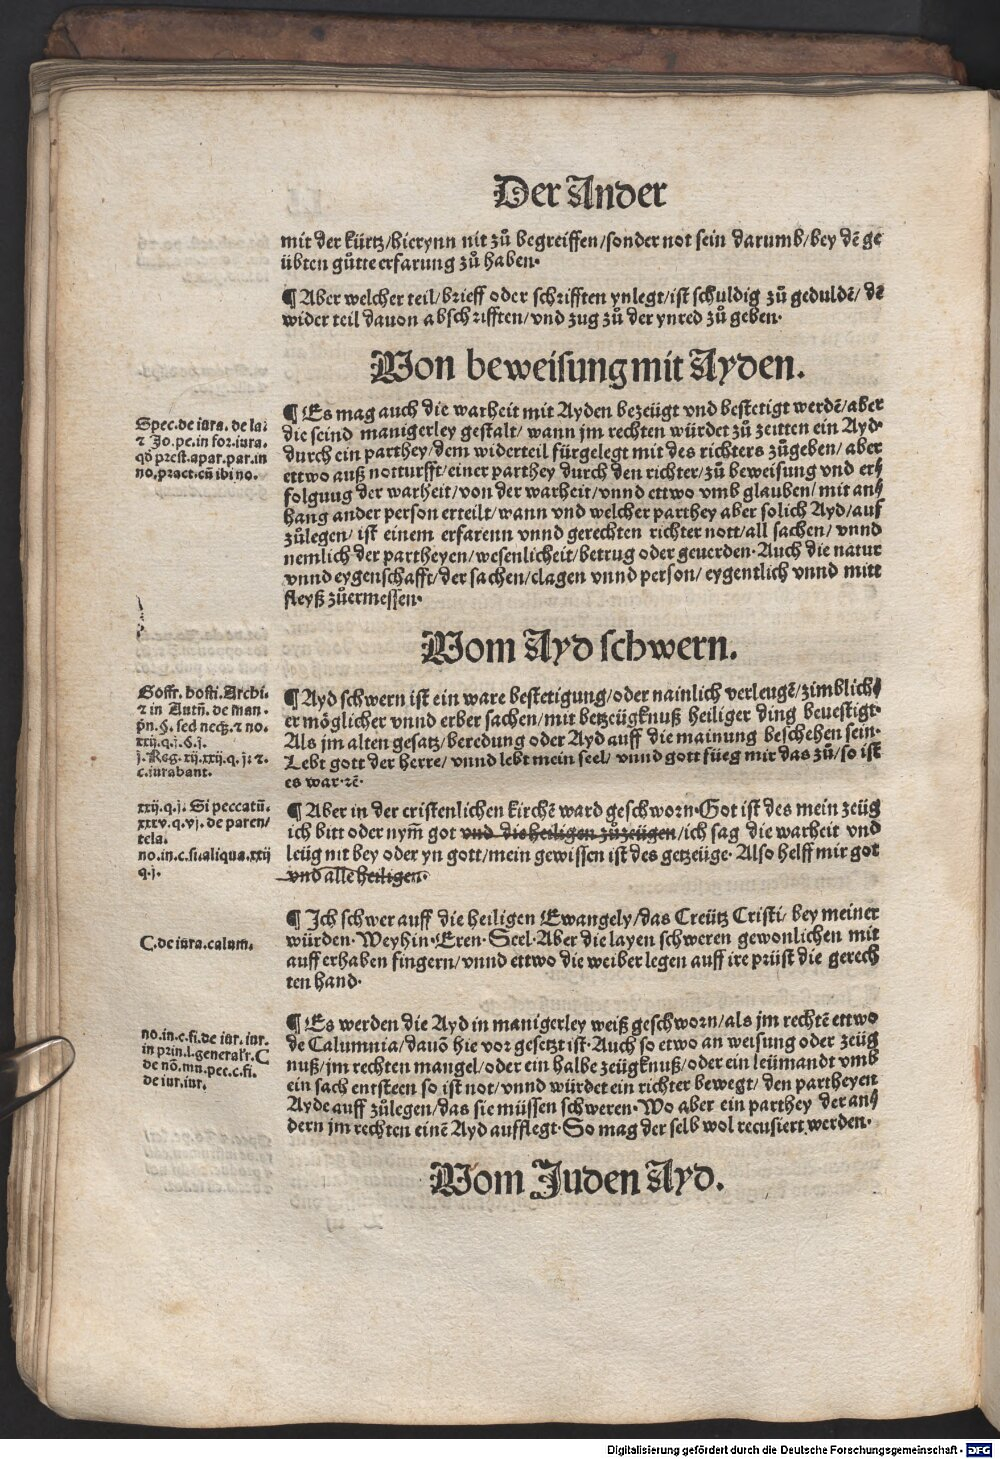 Der Ander
mit der kürtz/hierynn nit zů begreiffen/sonder not sein darumb/bey dē ge
übten gůtte erfarung zů haben.
¶ Aber welcher teil/brieff oder schrifften ynlegt/ist schuldig zů geduldē/ dē
wider teil dauon abschrifften/vnd zug zů der ynred zů geben.
Von beweisung mit Ayden.
Spec. de iura. de la:
⁊ Jo. pe. in for. iura.
qđ prest. apar. par. in
no. pract. cū ibi no.
¶ Es mag auch die warheit mit Ayden bezeügt vnd bestetigt werdē/aber
die seind manigerley gestalt/ wann jm rechten würdet zů zeitten ein Ayd.
durch ein parthey/dem widerteil fürgelegt mit des richters zůgeben/ aber
ettwo auß notturfft/einer parthey durch den richter/zů beweisung vnd er⸗
folguug der warheit/von der warheit/vnnd ettwo vmb glauben/ mit an⸗
hang ander person erteilt/wann vnd welcher parthey aber solich Ayd/auf
zůlegen/ ist einem erfarenn vnnd gerechten richter nott/all sachen/ vnnd
nemlich der partheyen/wesenlicheit/betrug oder geuerden. Auch die natur
vnnd eygenschafft/der sachen/clagen vnnd person/ eygentlich vnnd mitt
fleyß zůermessen.
Vom Ayd schwern.
Goffr. hosti. Archi.
⁊ in Autñ. de man.
p̄n. §. sed necꝫ. ⁊ no.
xxij. q. j. §. j.
j. Reg. xij. xxij. q. j: ⁊.
c. iurabant.
¶ Ayd schwern ist ein ware bestetigung/oder nainlich verleugē/zimblich⸗
er möglicher vnnd erber sachen/mit betzeügknuß heiliger ding beuestigt.
Als jm alten gesatz/beredung oder Ayd auff die mainung beschehen sein.
Lebt gott der herre/ vnnd lebt mein seel/ vnnd gott füeg mir das zů/so ist
es war. ⁊ē.
xxij. q. j. Si peccatū.
xxxv. q. vj. de paren/
tela.
no. in. c. fi. aliqua. xxij
q. j.
¶ Aber in der cristenlichen kirchē ward geschworn. Got ist des mein zeüg
ich bitt oder nym̄ got vnd die heiligen zůzeügen/ich sag die warheit vnd
leüg nit bey oder yn gott/mein gewissen ist des getzeüge. Also helff mir got
vnd alle heiligen.
C. de iura. calum.
¶ Ich schwer auff die heiligen Ewangely/das Creütz Cristi/ bey meiner
würden. Weyhin. Eren. Seel. Aber die layen schweren gewonlichen mit
auff erhaben fingern/vnnd ettwo die weiber legen auff ire prüst die gerech
ten hand.
no. in. c. fi. de iur. iur.
in prin. l. generalr. C
de nō. mu. pec. c. fi.
de iur. iur.
¶ Es werden die Ayd in manigerley weiß geschworn/als jm rechtē ettwo
de Calumnia/dauō hie vor gesetzt ist. Auch so etwo an weisung oder zeüg
nuß/jm rechten mangel/oder ein halbe zeügknuß/oder ein leümandt vmb
ein sach entsteen so ist not/vnnd würdet ein richter bewegt/ den partheyen
Ayde auff zůlegen/das sie müssen schweren. Wo aber ein parthey der an⸗
dern jm rechten einē Ayd aufflegt. So mag der selb wol recusiert werden.
Vom Juden Ayd.
Digitalisierung gefördert durch die Deutsche Forschungsgemeinschaft - DFG